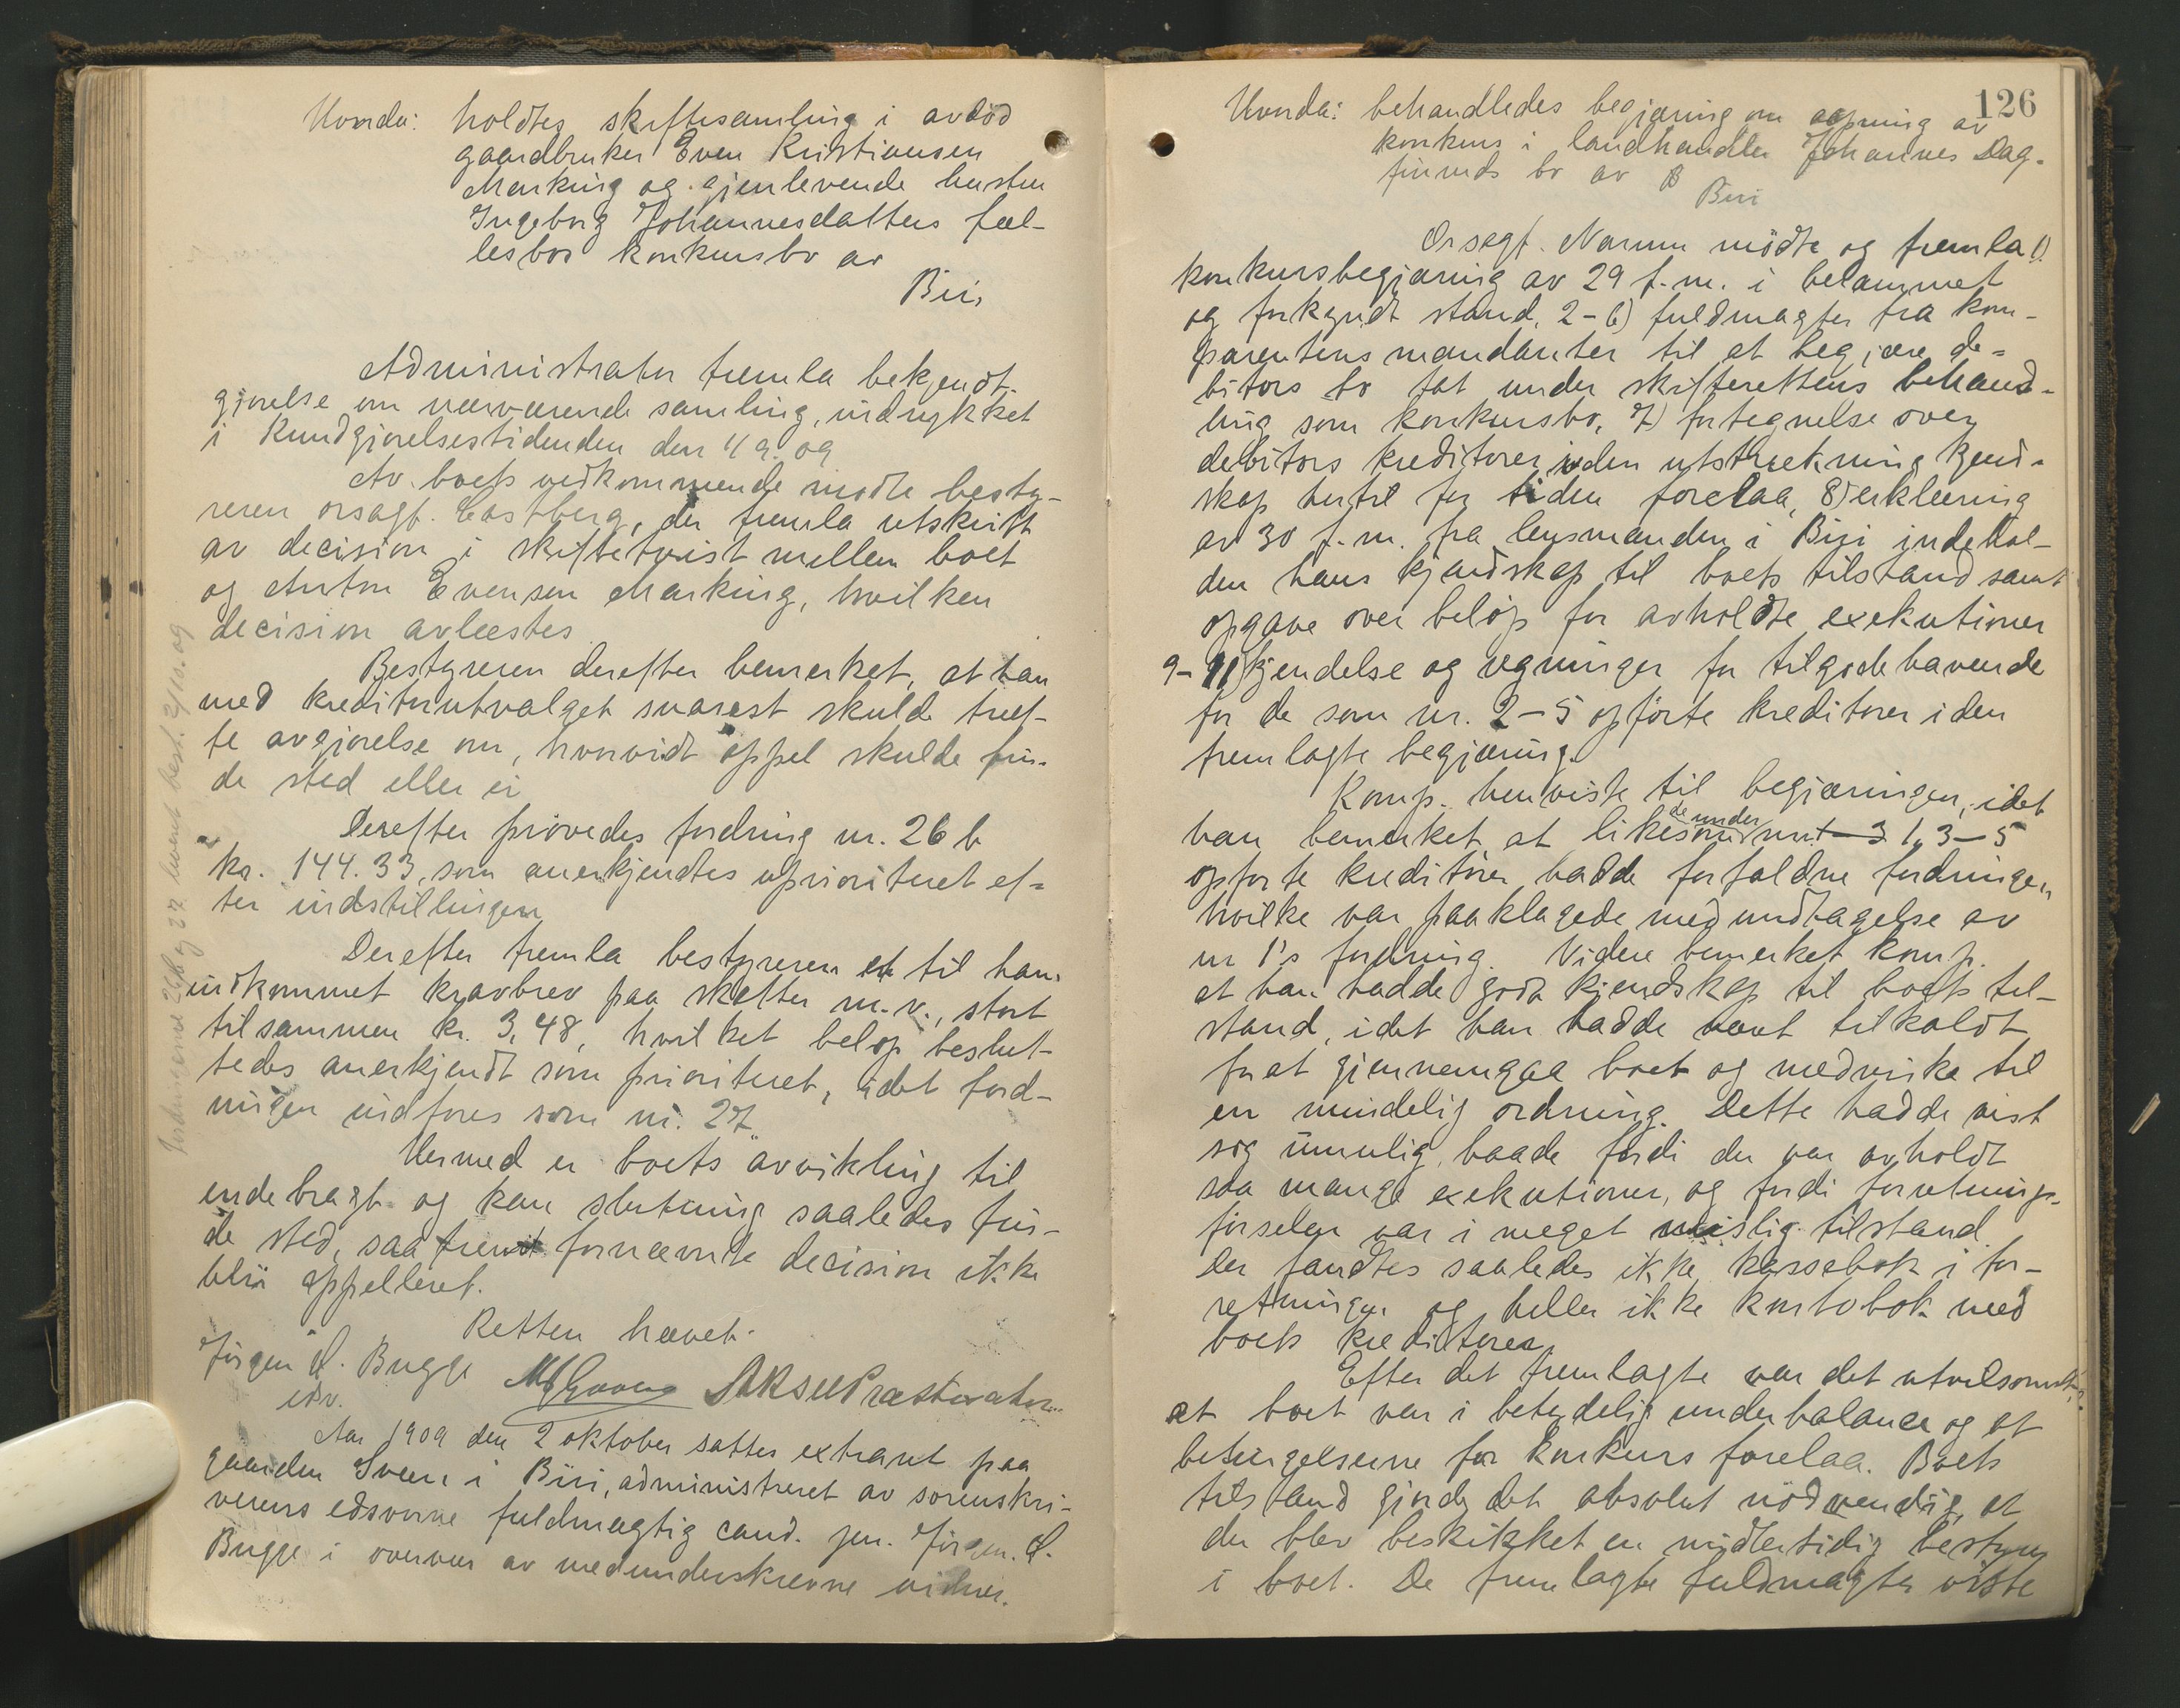 Hvorda: holdtes skiftesamling i avdöd
gaardbruker Even Kristiansen
Marking og gjenlevende hustru
Ingeborg Johannesdatters fæl-
lesbos konkursbo av
Biri,
Administrator fremla bekjendt-
gjørelse om nærværende samling, indrykket
i Kundgjørelsestidenden den 4 9. og
Av boets vedkommende mødte besty-
reren orsagf. Castberg, der fremla utskrift
av decision i skiftetvist mellem boet
og Anton Evensen Marking, hvilken
decision avlæstes.
Bestyreren derefter bemerket, at han
med kreditorutvalget snarest skulde træf-
fe avgjørelse om, hvorvidt appel skulde fin-
de sted eller ei
Derefter prövedes fordring nr. 26 b
kr. 144.33, som anerkjendtes uprioritert ef-
ter indstillingen
Derefter fremla bestyreren et til ham
indkommet kravbrev paa skatter m.v., stort
tilsammen kr. 3,48, hvilket beløp beslut-
tedes anerkjendt som prioritert, idet ford-
ningen indføres som nr. 27.
Hermed er boets avvikling til
endebragt og kan slutning saaledes fin-
de sted, saafremt fornævnte decision ikke
blir appelleret.
Retten hævet.
Jörgen S. Bugge
edv.
Aar 1909 den 2 oktober sattes extraret paa
gaarden Sveen i Biri, administreret av sorenskri-
verens edsvorne fuldmægtig cand. jur. Jörgen S.
Bugge i overvær av medunderskrevne vidner.
Fordringerne 26b og 27 besl. 2/10. 09
126
Hvorda: behandledes begjæring om aapning av
konkurs i landhandler Johannes Dag-
finruds bo av B
Biri
Orsagf. Narum mödte og fremla 1)
konkursbegjæring av 29 f.m. i belammet
og forkyndt stand, 2-6) fuldmagter fra kom-
parentens mandanter til at begjære de-
bitors bo tat under skifterettens behand-
ling som konkursbo, 7) fortegnelse over
debitors kreditorer i den utstrækning kjend-
skap hertil for tiden forelaa, 8) erklæring
av 30 f.m. fra lensmanden i Biri indehol-
den hans kjendskap til boets tilstand samt
opgave over beløp for avholdte exekutioner
9-11) kjendelse og regninger for tilgodehavende
for de som nr. 2-5 opførte kreditorer i den
fremlagte begjæring.
Komp. henviste til begjæringen, idet
han bemerket at likesom de under nr. 1, 3-5
opførte kreditorer hadde forfaldne fordringer,
hvilke var paaklagede med undtagelse av
nr 1's fordring. Videre bemerket komp.
at han hadde god kjendskap til boets til-
stand, idet han hadde været tilkaldt
for at gjennemgaa boet og medvirke til
en mindelig ordning. Dette hadde vist
sig umulig, baade fordi der var avholdt
saa mange exekutioner, og fordi forretnings-
førselen var i meget mislig tilstand.
Der fandtes saaledes ikke kassebok i for-
retningen og heller ikke kontobok med
boets kreditorer
Efter det fremlagte var det utvilsomt,
at boet var i betydelig underbalance og at
betingelserne for konkurs forelaa. Boets
tilstand gjorde det absolut nödvendig, at
der blev beskikket en midlertidig bestyrer
i boet. De fremlagte fuldmagter viste